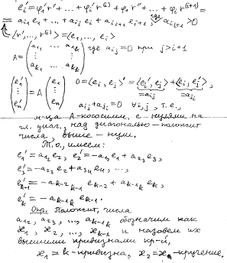 e₁' = φ₁'r' + ... + φ₁r'' + ... + φᵢr⁽ⁱ⁺¹⁾ =
= a_{i1} e₁ + ... + a_{ii} e_i + a_{i,i+1} e_{i+1}, где a_{i,i+1} > 0
(r', ..., r⁽ᵏ⁾) = (e₁, ..., e_i)
A = (a₁₁ ... a₁ₖ ... aₖₖ) где a_{ij} = 0 при j > i+1
(e₁' ... eₖ') = A (e₁ ... eₖ) 0 = (e_i, e_j)' = (e_i', e_j) + (e_i, e_j'),
= a_{ij} = a_{ji}
a_{ij} + a_{ji} = 0 ∀ i, j, т.е.
А - кососимм., с нулями на
гл. диаг., над диагональю - полож.
числа, выше - нули.
Т.о., имеем:
e₁' = a₁₂ e₂, e₂' = -a₁₂ e₁ + a₂₃ e₃,
e₃' = -a₂₃ e₂ + a₃₄ e₄, ...,
e'ₖ₋₁ = -aₖ₋₂ₖ₋₁ eₖ₋₂ + aₖ₋₁ₖ eₖ,
eₖ' = -aₖ₋₁ₖ eₖ₋₁.
Опр. Положит. числа
a₁₂, a₂₃, ..., aₖ₋₁ₖ обозначим как
ϰ₁, ϰ₂, ..., ϰₖ₋₁ и назовём их
высшими кривизнами кр-й,
ϰ₁ = k - кривизна, ϰ₂ = ϰ - кручение.